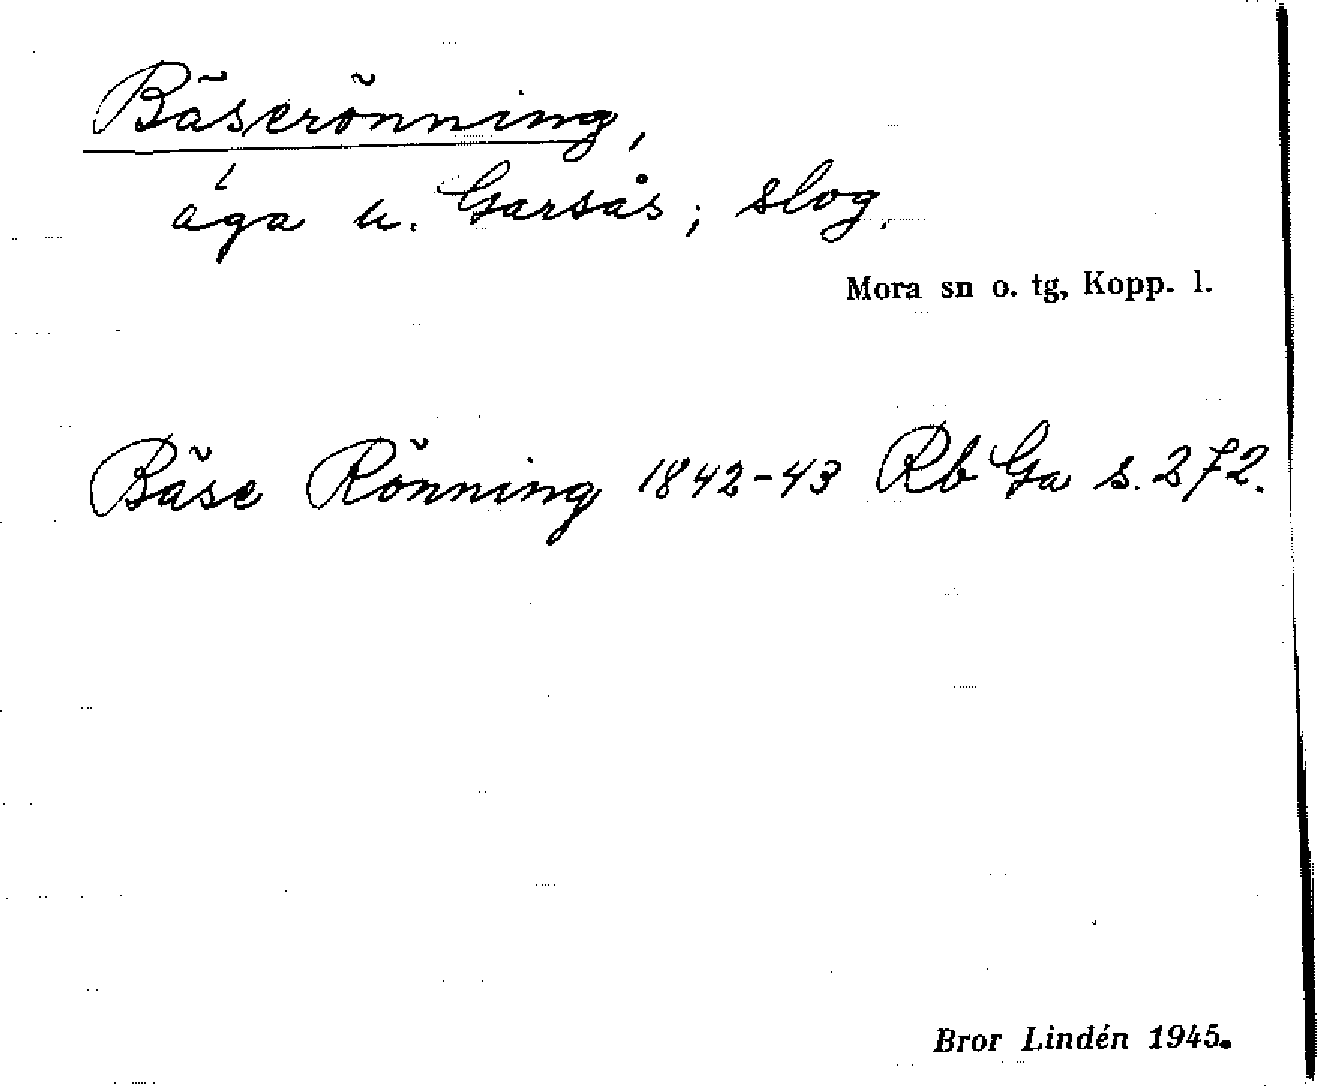 Bäserönning,
äga u. Garsås; slog.
Mora sn o. tg, Kopp. l.
Bäse Rönning 1842-43 Rb Ga s. 272.
Bror Lindén 1945.